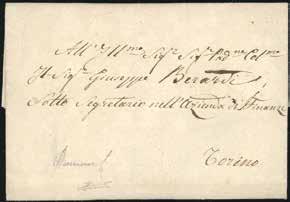 All'Ill.mo Sig.r Sig.r Pad.ne Col.mo
Il Sig.r Giuseppe Berardi
Sotto Segretario nell'Azienda di Finanze
Torino